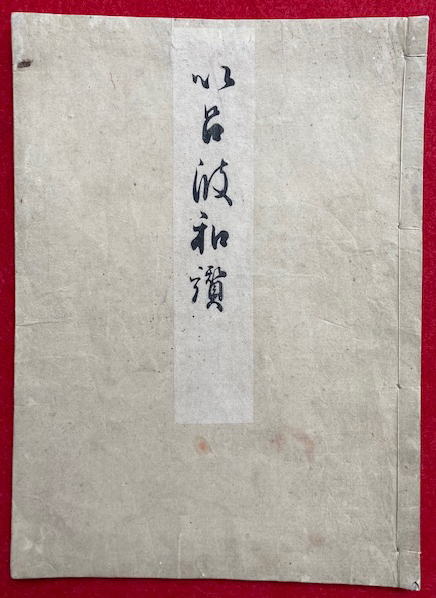 以呂波和讃